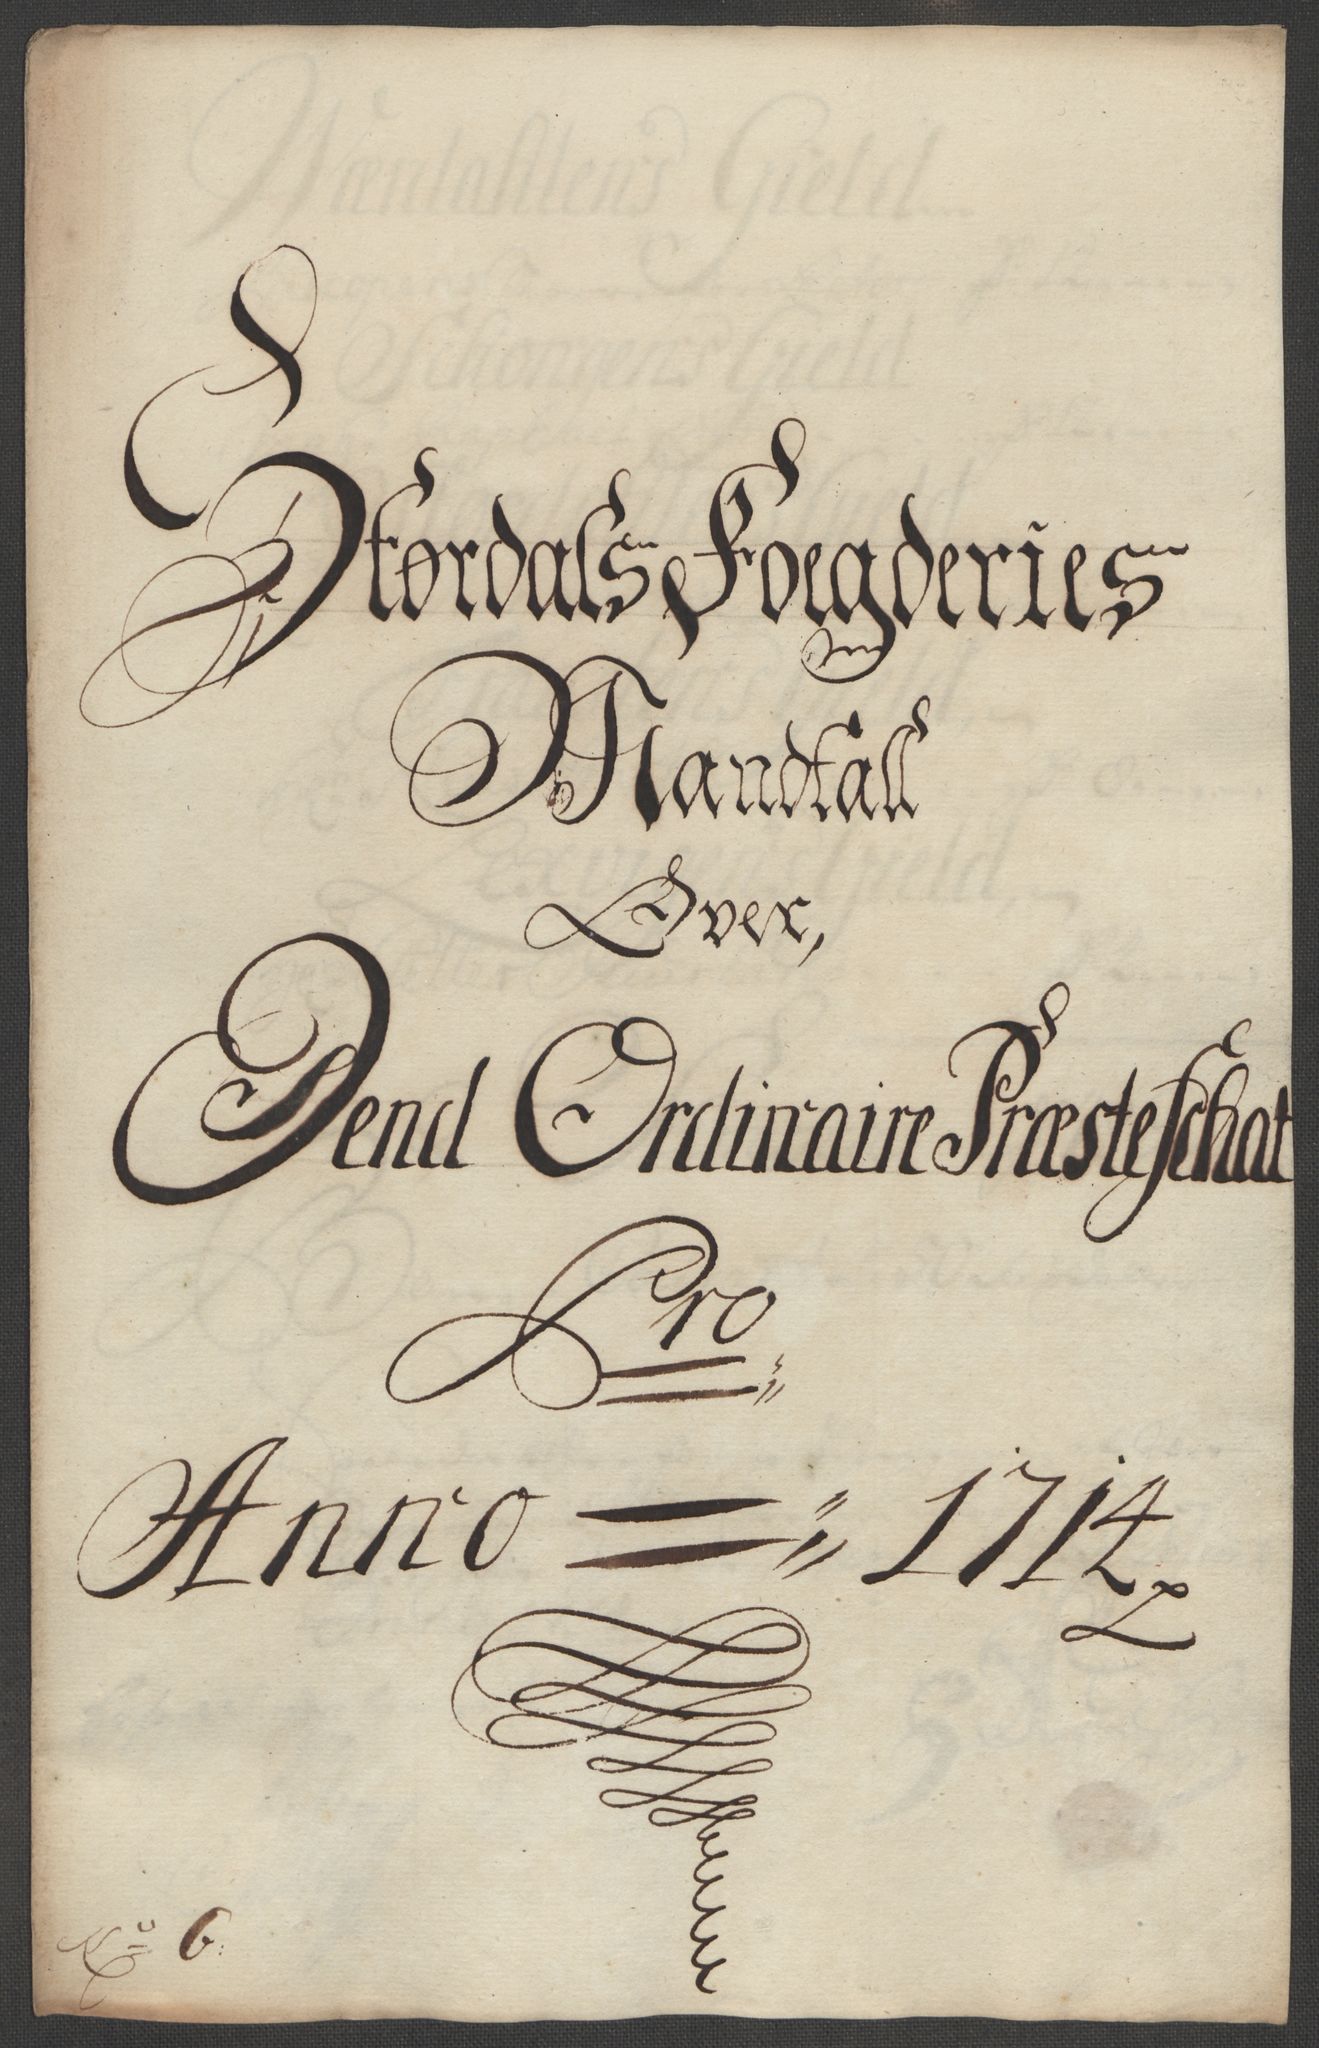 Størdals Foegderies
Mandtall
Over,
Dend Ordinaire Præsteschat
Pro
Anno = 1714
No 6.